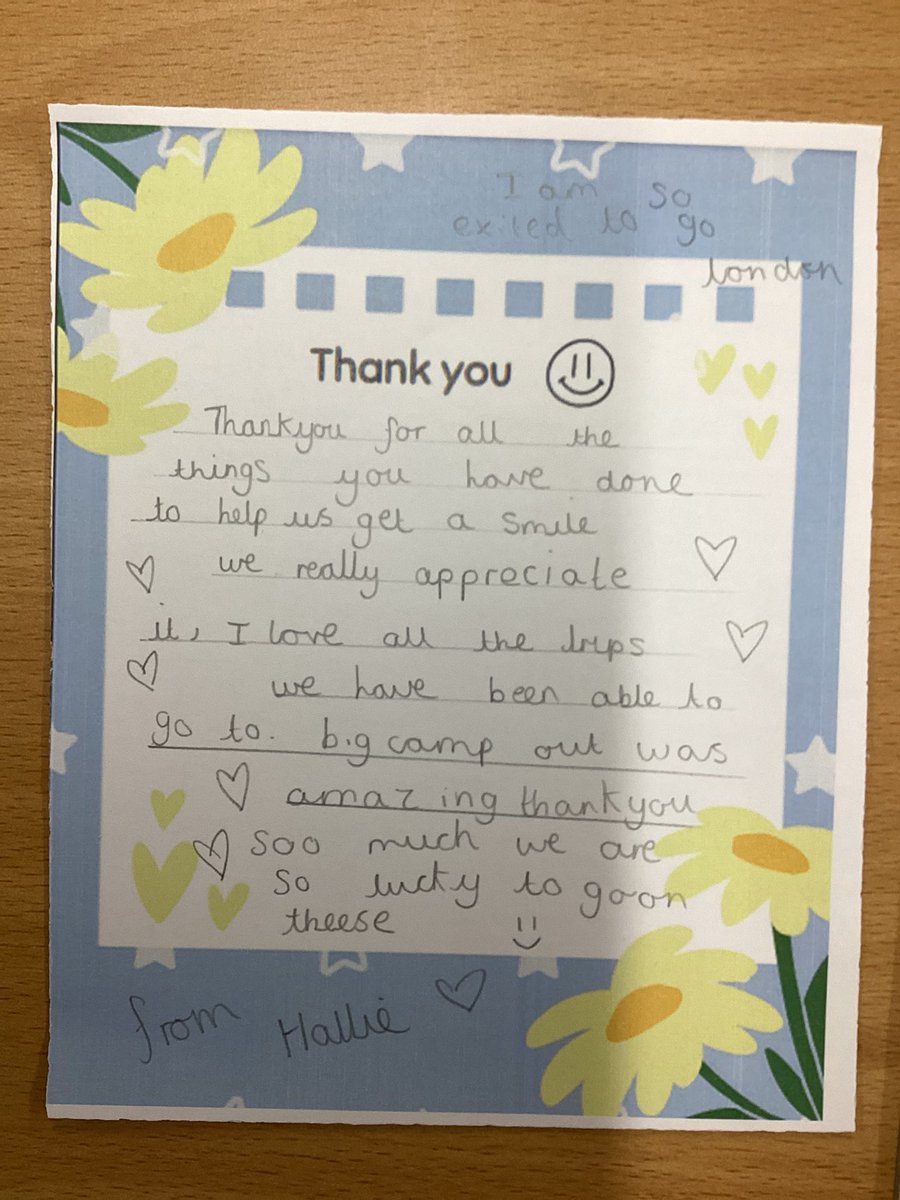 I am so
exited to go
london
Thank you
Thankyou for all the
things you have done
to help us get a smile
we really appreciate
it, I love all the trips
we have been able to
go to. big camp out was
amazing thankyou
soo much we are
so lucky to goon
theese
from Hallie